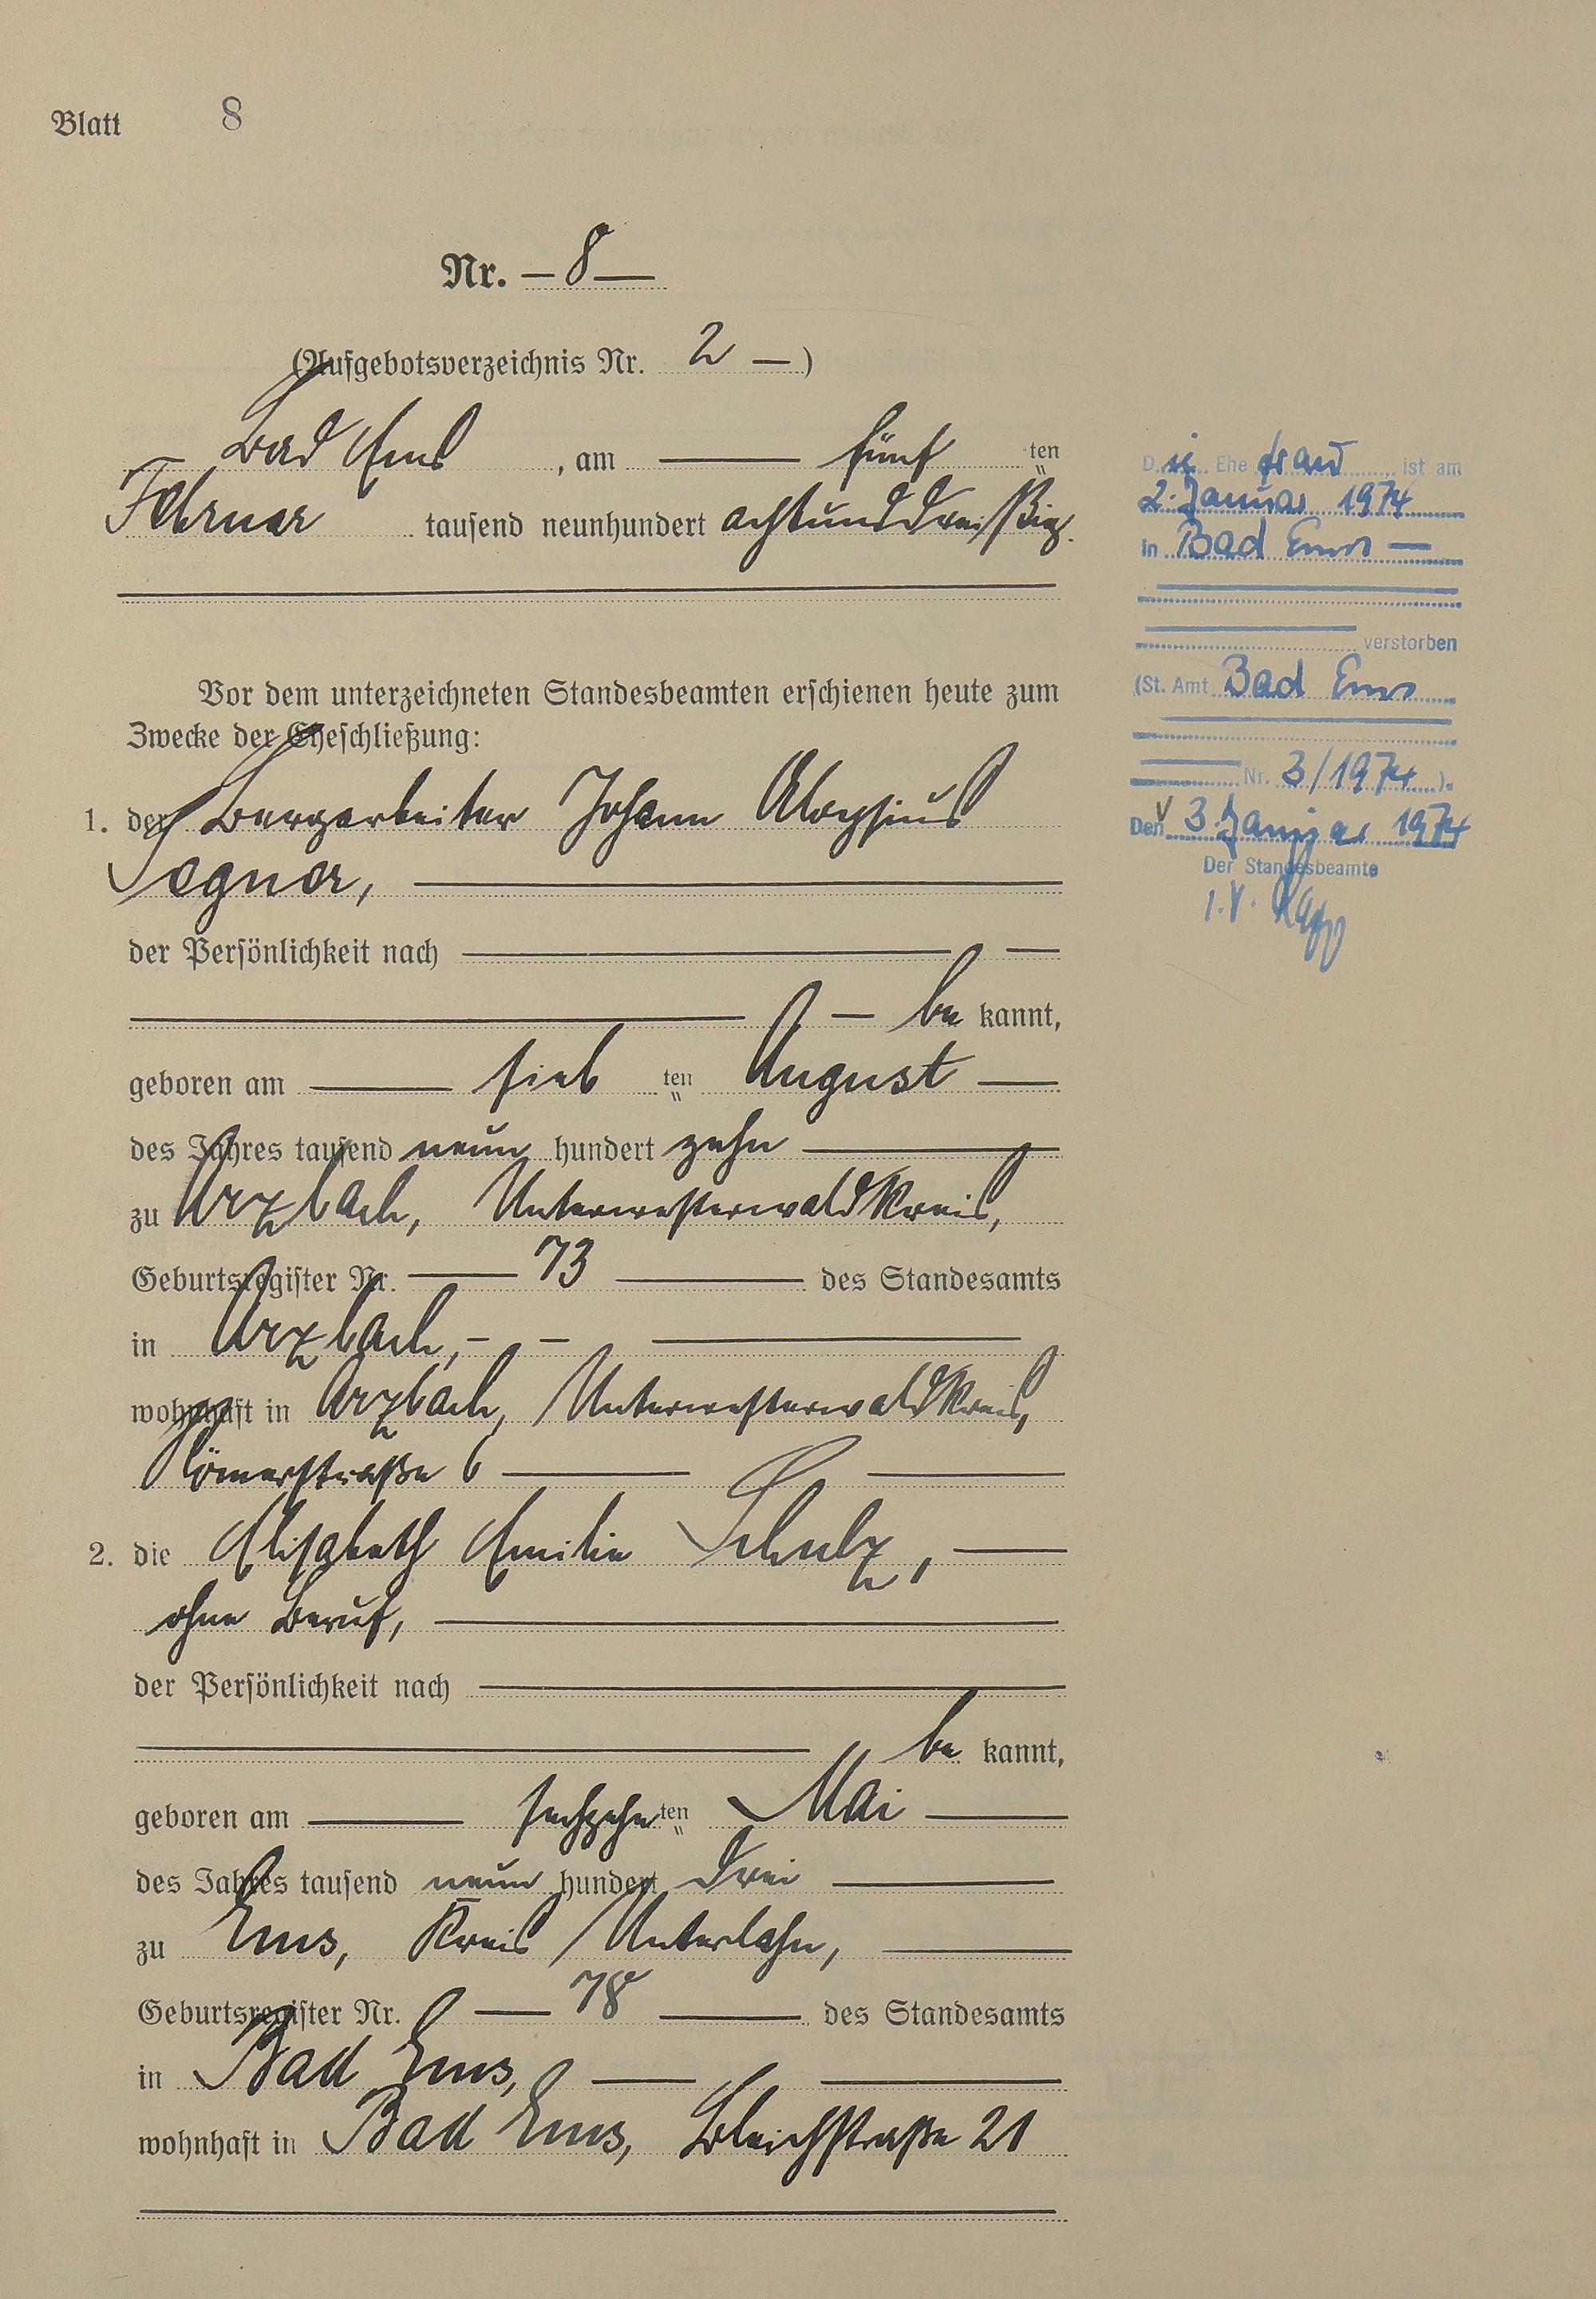 Blatt 8
Nr. — 8 —
(Aufgebotsverzeichnis Nr. 2 —)
Bad Ems, am — fünf ten
Februar tausend neunhundert achtunddreißig.
Vor dem unterzeichneten Standesbeamten erschienen heute zum
Zwecke der Eheschließung:
1. der Bergarbeiter Johann Aloysius
Segner, —
der Persönlichkeit nach — —
— — be kannt,
geboren am — sieb ten August —
des Jahres tausend neun hundert zehn —
zu Arzbach, Unterwesterwaldkreis,
Geburtsregister Nr. — 73 — des Standesamts
in Arzbach, - - —
wohnhaft in Arzbach, Unterwesterwaldkreis,
Römerstraße 6 — —
2. die Elisabeth Emilie Schulz, —
ohne Beruf, —
der Persönlichkeit nach —
— be kannt,
geboren am — sechzehn ten Mai —
des Jahres tausend neun hundert drei —
zu Ems, Kreis Unterlahn, —
Geburtsregister Nr. — 78 — des Standesamts
in Bad Ems, — —
wohnhaft in Bad Ems, Bleichstraße 21
Die Ehe frau ist am
2. Januar 1974
in Bad Ems —
verstorben
(St. Amt Bad Ems
Nr. 3/1974).
Den 3. Januar 1974
Der Standesbeamte
I.V.